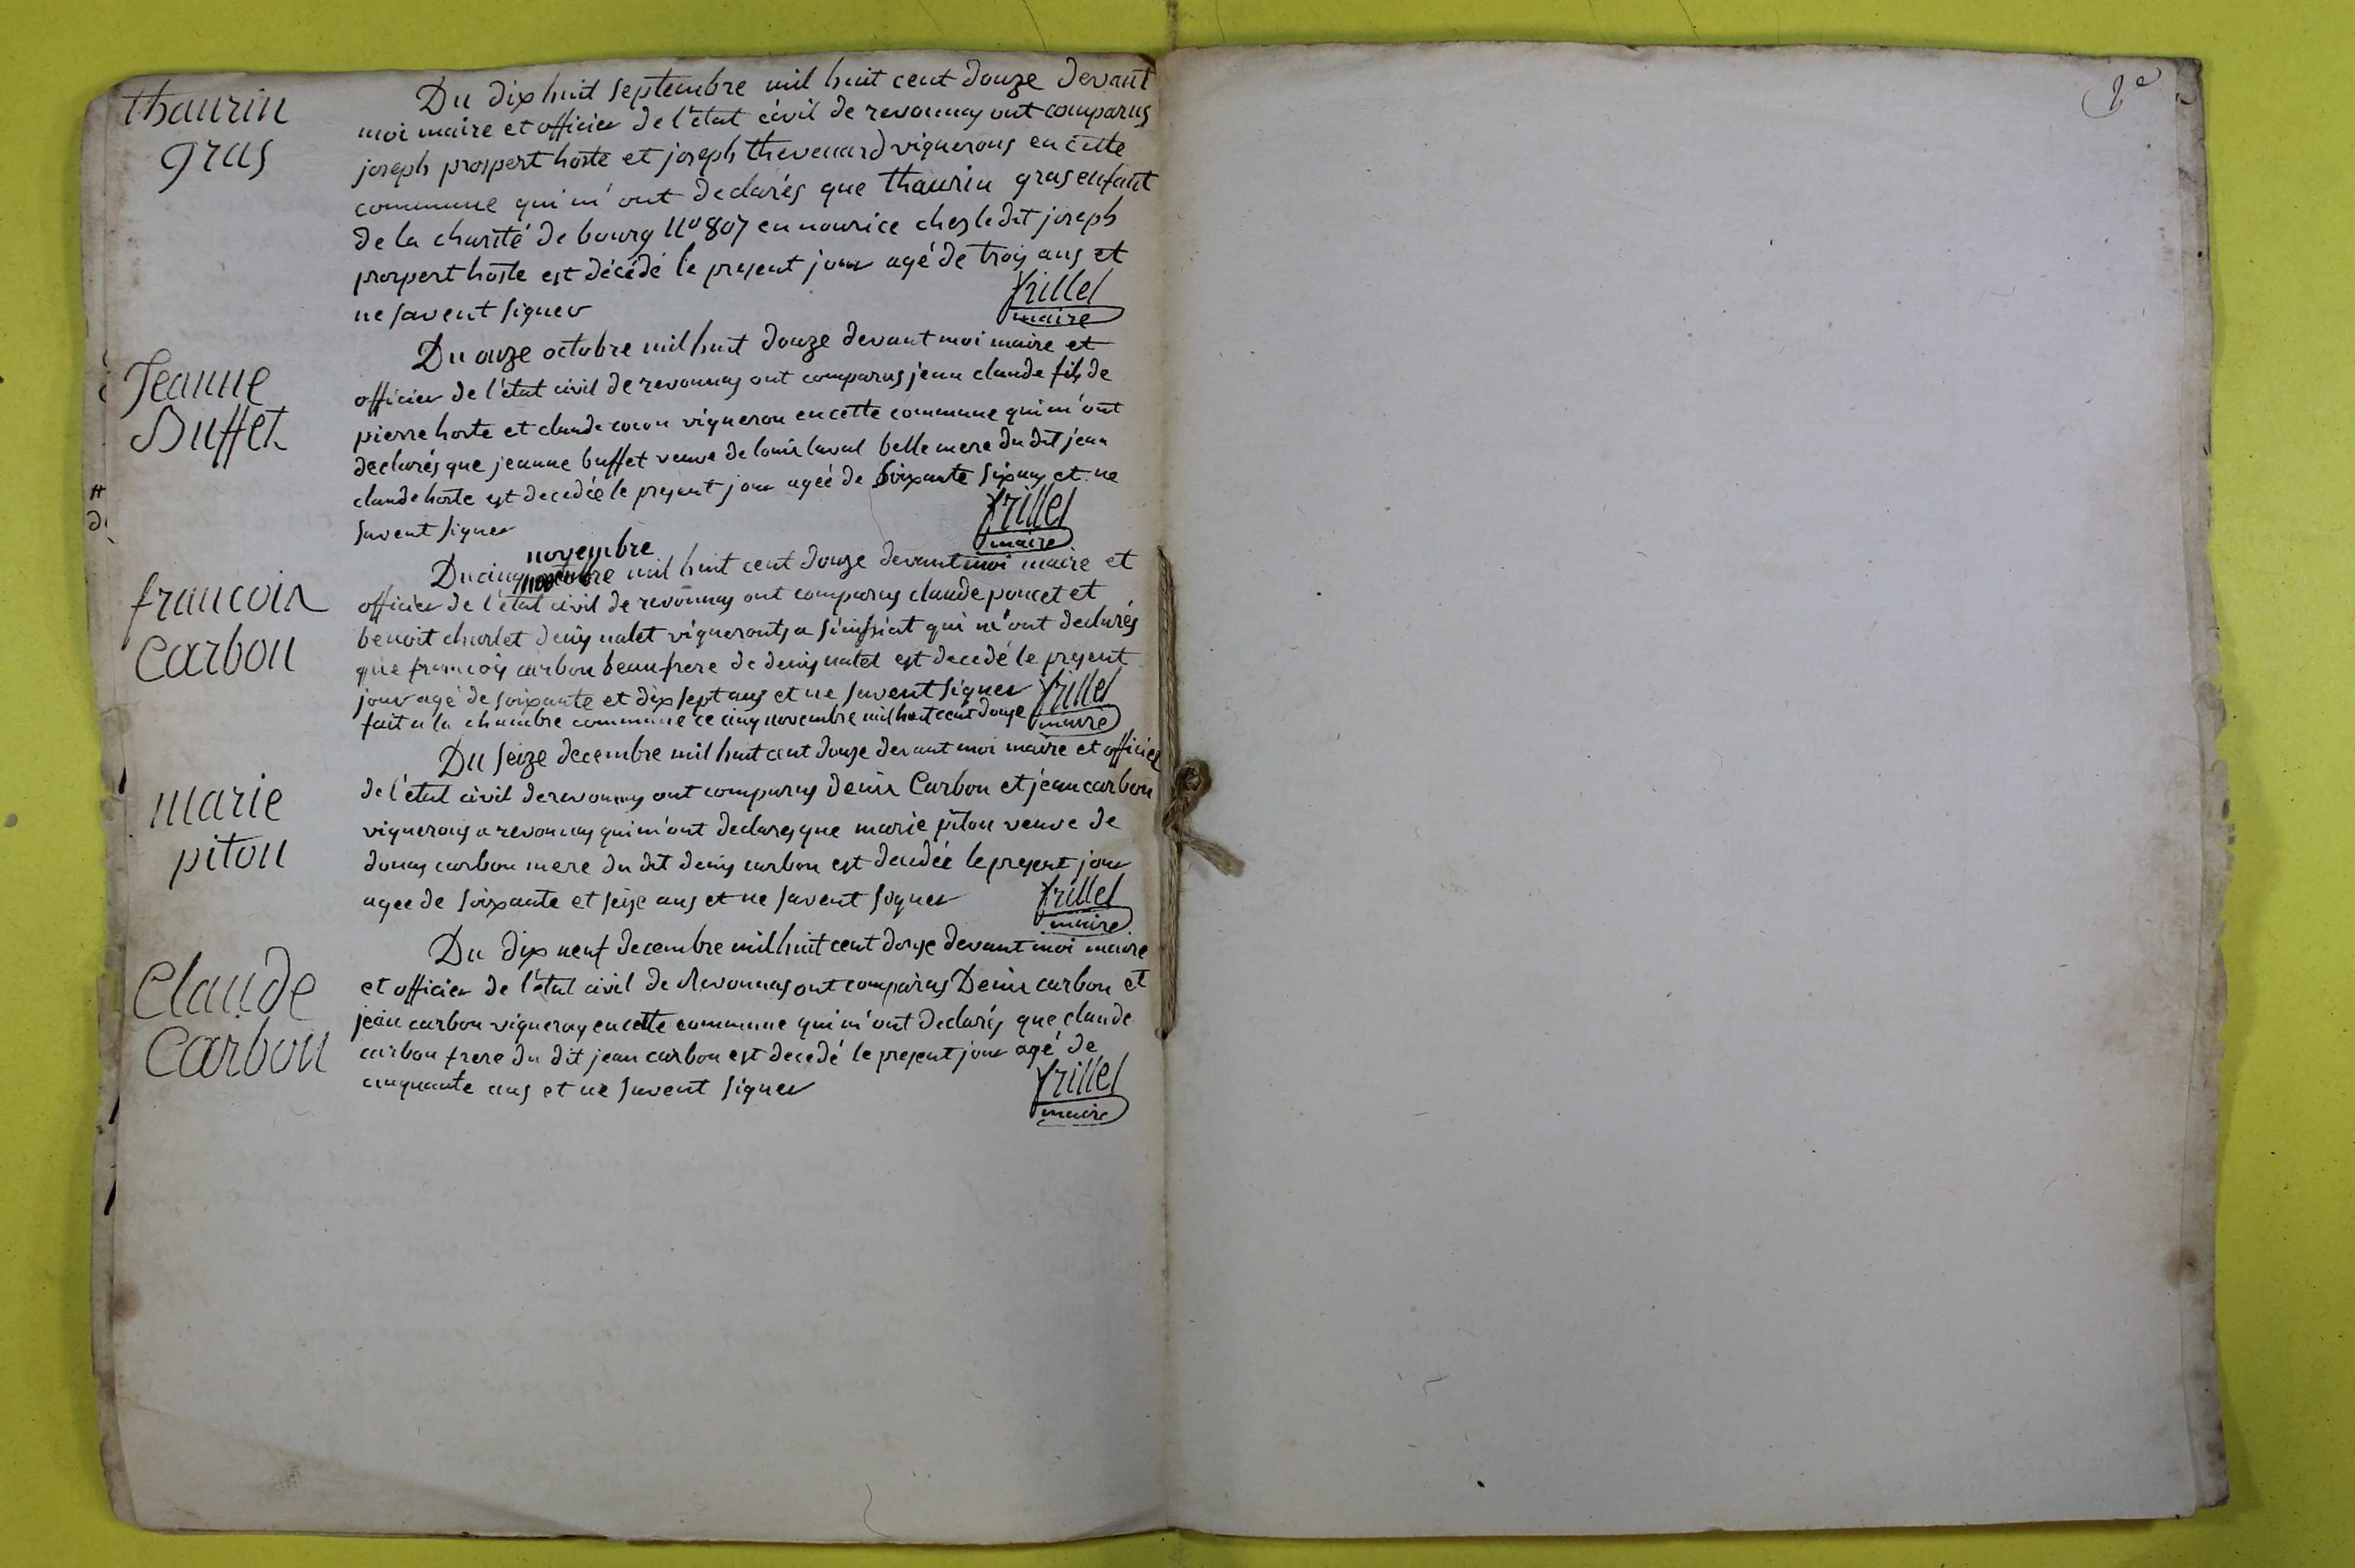 thaurin
gras
Du dix huit septembre mil huit cent douze devant
moi maire et officier de l'état civil de revonnas ont comparus
joseph prospert hoste et joseph thevenard vignerons en cette
commune qui m'ont declarés que thaurin gras enfant
de la charité de bourg n° 807 en nourice chez le dit joseph
prospert hoste est décédé le present jour agé de trois ans et
ne savent signer
frillet
maire
Jeanne
Buffet
Du onze octobre mil huit douze devant moi maire et
officier de l'état civil de revonnas ont comparus jean claude fils de
pierre hoste et claude cocon vigneron en cette commune qui m'ont
declarés que jeanne buffet veuve de louis laval belle mere du dit jean
claude hoste est decedée le present jour ageé de soixante six ans et ne
savent signer
frillet
maire
francois
Carbon
novembre
Du cinq mil huit cent douze devant moi maire et
officier de l'état civil de revonnas ont comparus claude poncet et
benoit charlet denis nalet vigneronts a simssiat qui m'ont declarés
que francois carbon beaufrere de denis natel est decedé le present
jour agé de soixante et dix sept ans et ne savent signer
fait a la chambre commune ce cinq novembre mil huit cent douze
frillet
maire
marie
piton
Du seize decembre mil huit cent douze devant moi maire et officier
de l'état civil de revonnas ont comparus denis Carbon et jean carbon
vignerons a revonnas qui m'ont declares que marie piton veuve de
carbon mere du dit denis carbon est decedée le present jour
agee de soixante et seize ans et ne savent signer
frillet
maire
Claude
Carbon
Du dix neuf decembre mil huit cent douze devant moi maire
et officier de l'état civil de Revonnas ont comparus Denis carbon et
jean carbon vignerons en cette commune qui m'ont declarés que claude
carbon frere du dit jean carbon est decedé le present jour agé de
cinquante ans et ne savent signer
frillet
maire